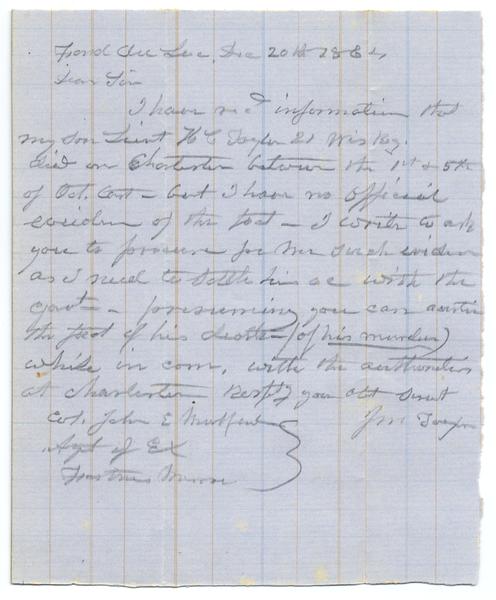 Fond Du Lac, Dec 20th 1864
Dear Sir
I have rec'd information that
my son Lieut H C Taylor 21 Wis Reg.
died on Charleston between the 1st & 5th
of Oct. last - but I have no official
evidence of the fact - I write to ask
you to procure for me such eviden
as I need to settle his ac with the
Govt - presuming you can ascertain
the fact of his death - (of his murder)
while in com, with the authorities
at Charleston Respy your obt Servt
Col. John E Mulford J M Taylor
Agt of EX
Fortress Monroe